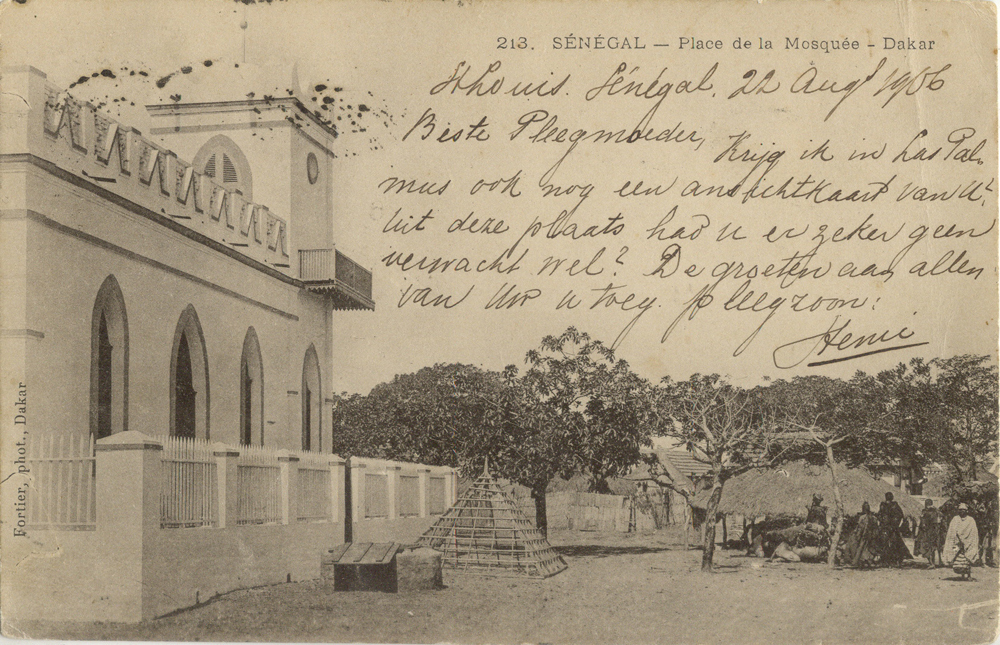 213. SÉNÉGAL — Place de la Mosquée - Dakar
St Louis. Sénégal, 22 Augt 1906
Beste Pleegmoeder,
Krijg ik in Las Pal-
mus ook nog een ansichtkaart van U?
Uit deze plaats had u er zeker geen
verwacht wel? De groeten aan allen
van Uw u toeg. pleegzoon:
Henri
Fortier, phot., Dakar